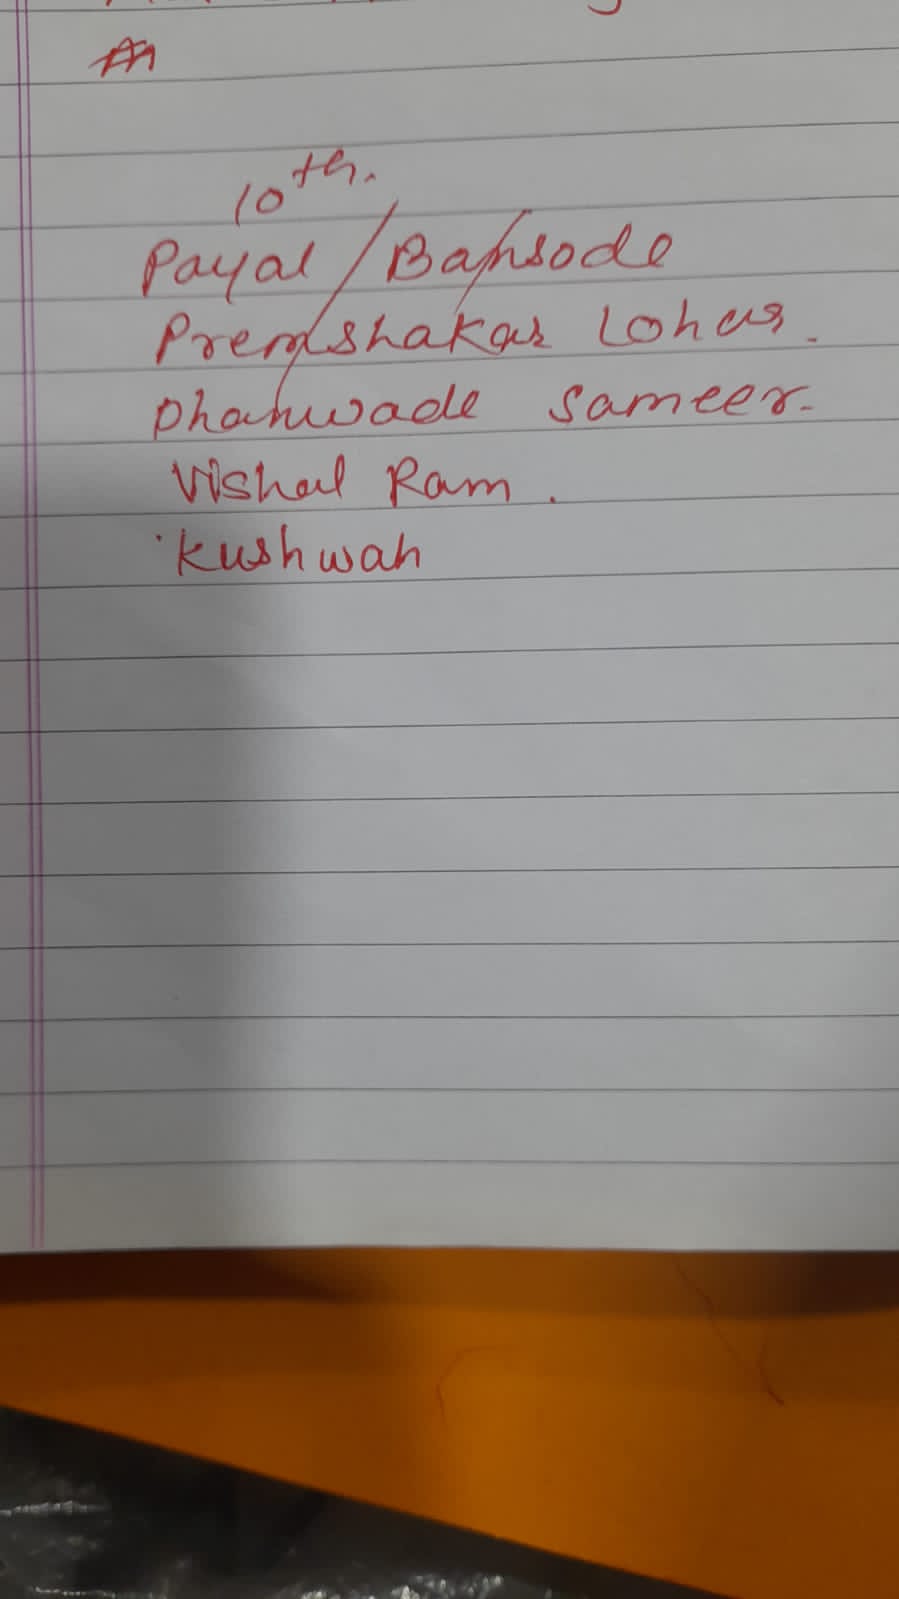 10th.
Payal / Bansode
Premshakar Lohar.
Dhanwade Sameer.
Vishal Ram.
Kushwah